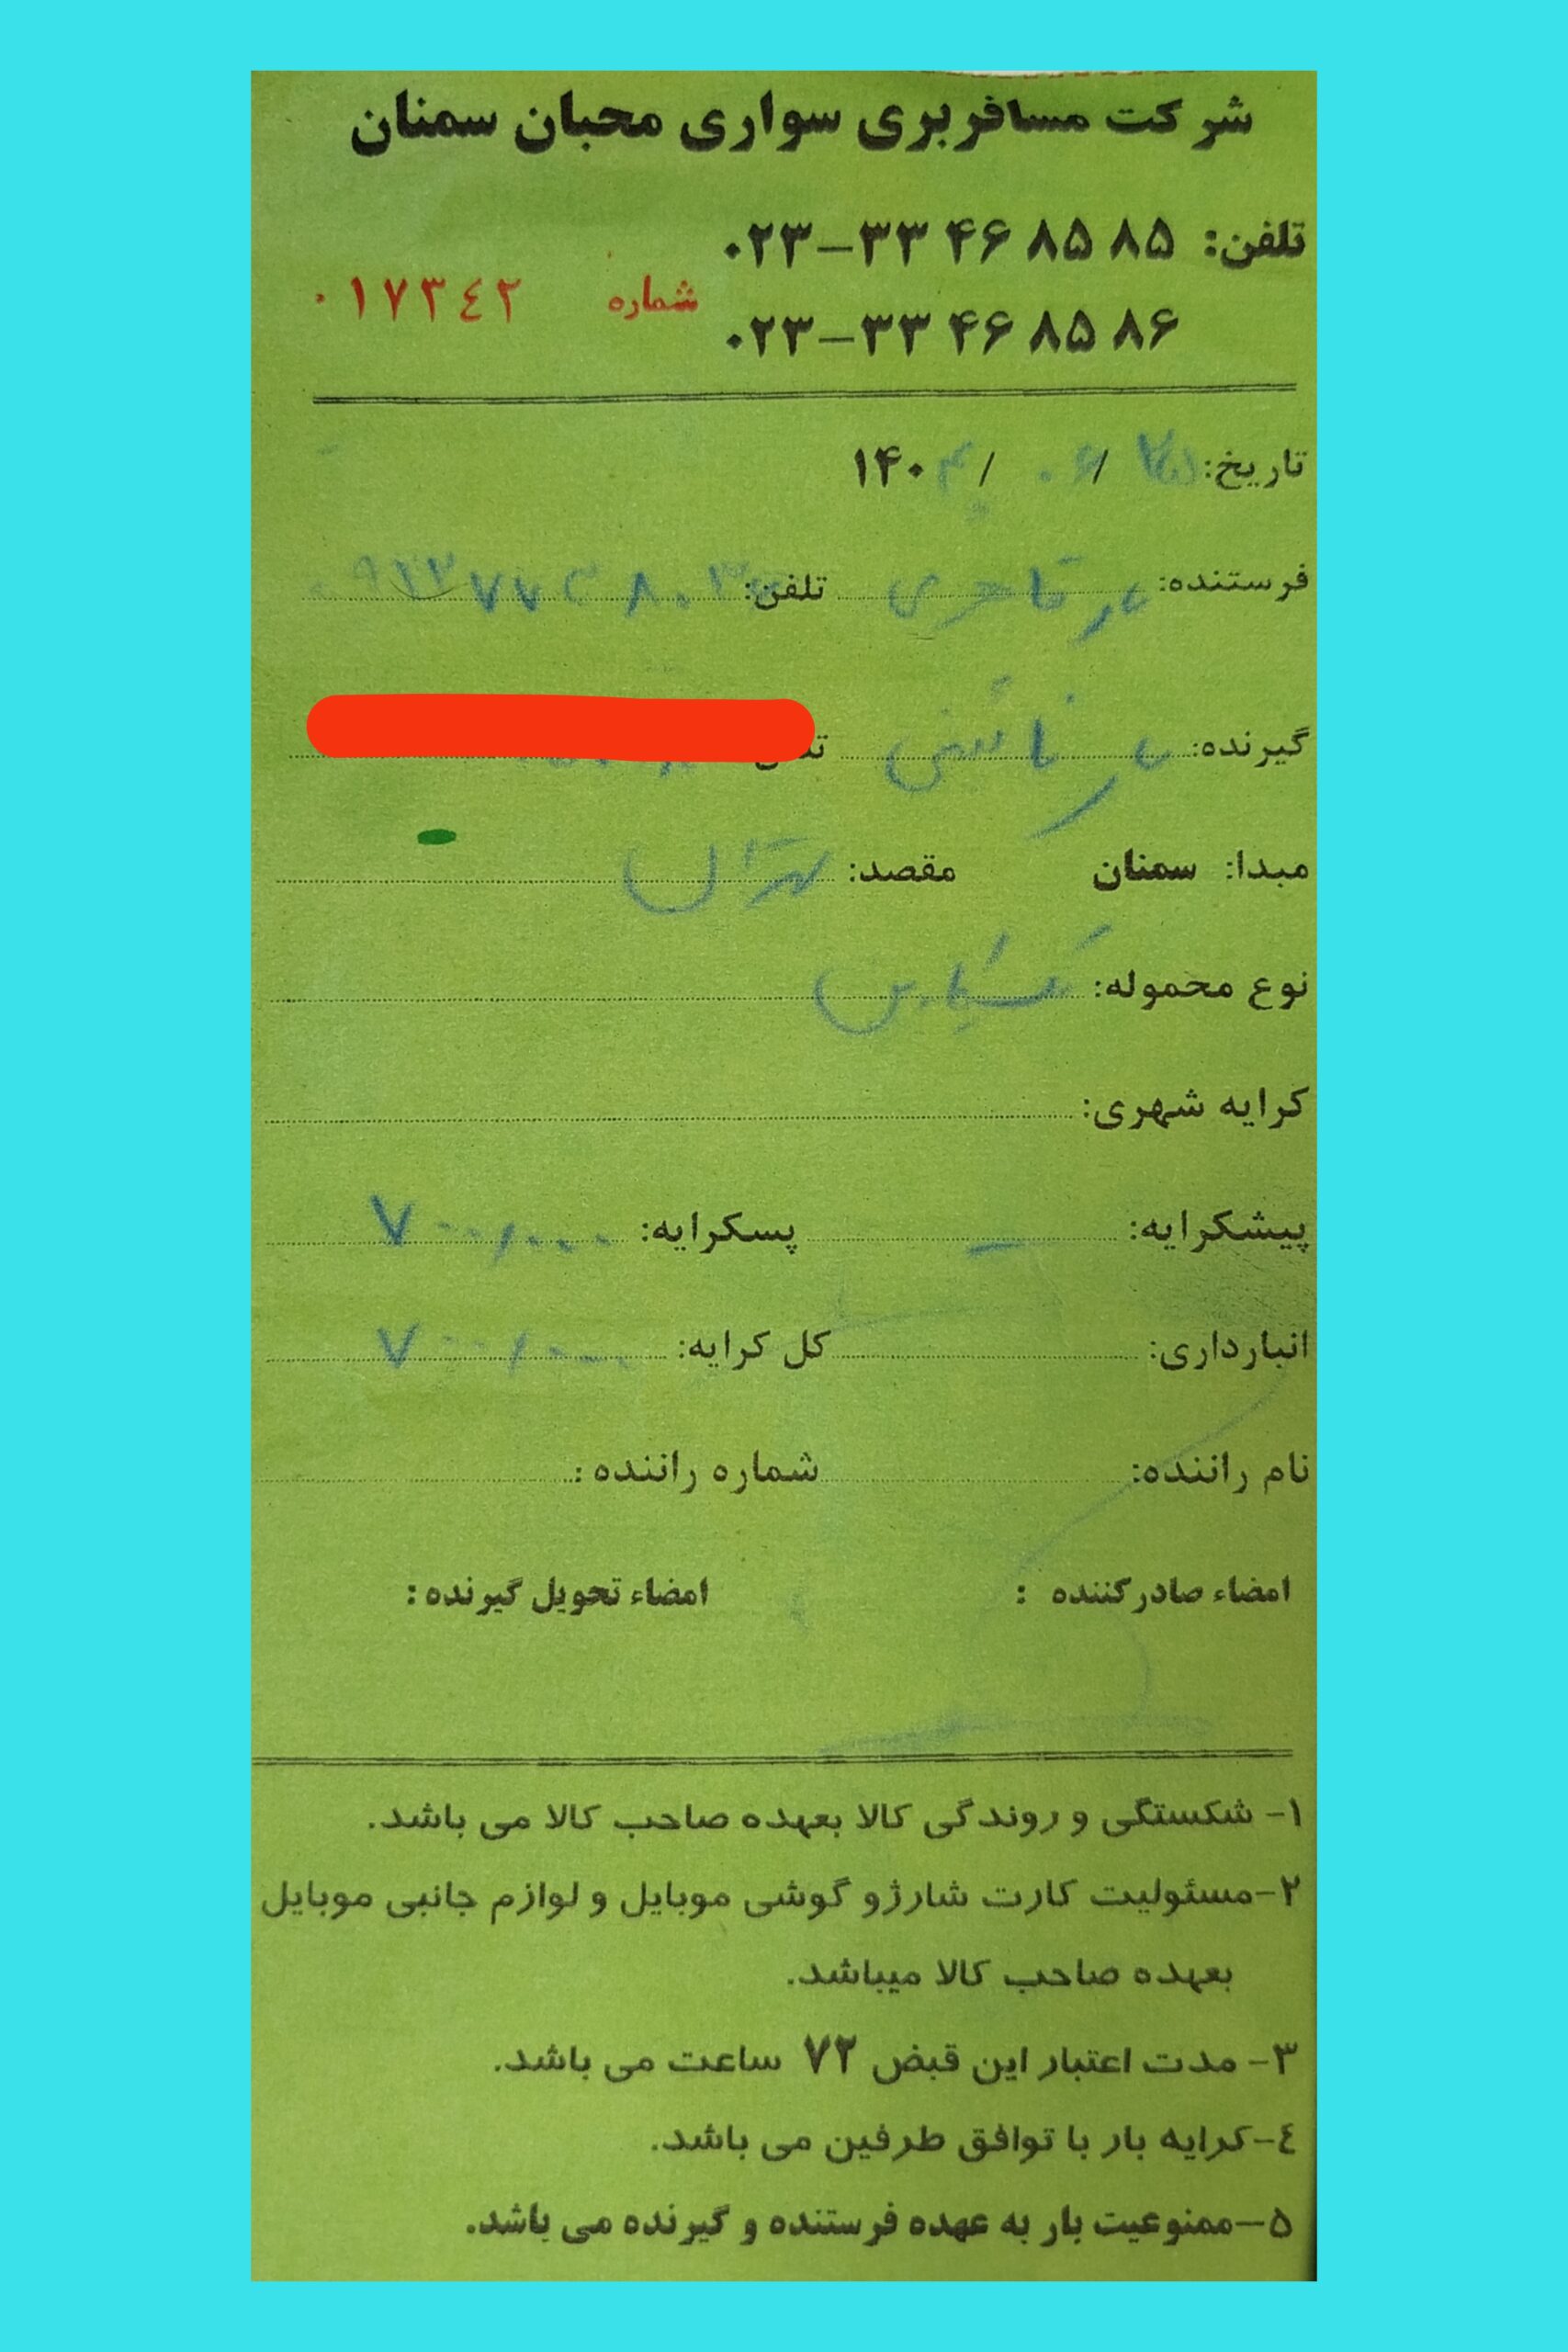 شرکت مسافربری سواری محبان سمنان
تلفن: ۰۲۳-۳۳ ۴۶ ۸۵ ۸۵
شماره ۰۱۷۳٤۲
۰۲۳-۳۳ ۴۶ ۸۵ ۸۶
تاریخ: ۲۵ / ۰۶ / ۱۴۰۴
فرستنده: تلفن:
گیرنده:
مبدا: سمنان مقصد: تهران
نوع محموله:
کرایه شهری:
پیشکرایه: – پسکرایه: ۷۰۰/۰۰۰
انبارداری: کل کرایه: ۷۰۰/۰۰۰
نام راننده: شماره راننده :
امضاء صادرکننده : امضاء تحویل گیرنده :
۱- شکستگی و روندگی کالا بعهده صاحب کالا می باشد.
۲-مسئولیت کارت شارژو گوشی موبایل و لوازم جانبی موبایل
بعهده صاحب کالا میباشد.
۳- مدت اعتبار این قبض ۷۲ ساعت می باشد.
٤-کرایه بار با توافق طرفین می باشد.
۵-ممنوعیت بار به عهده فرستنده و گیرنده می باشد.